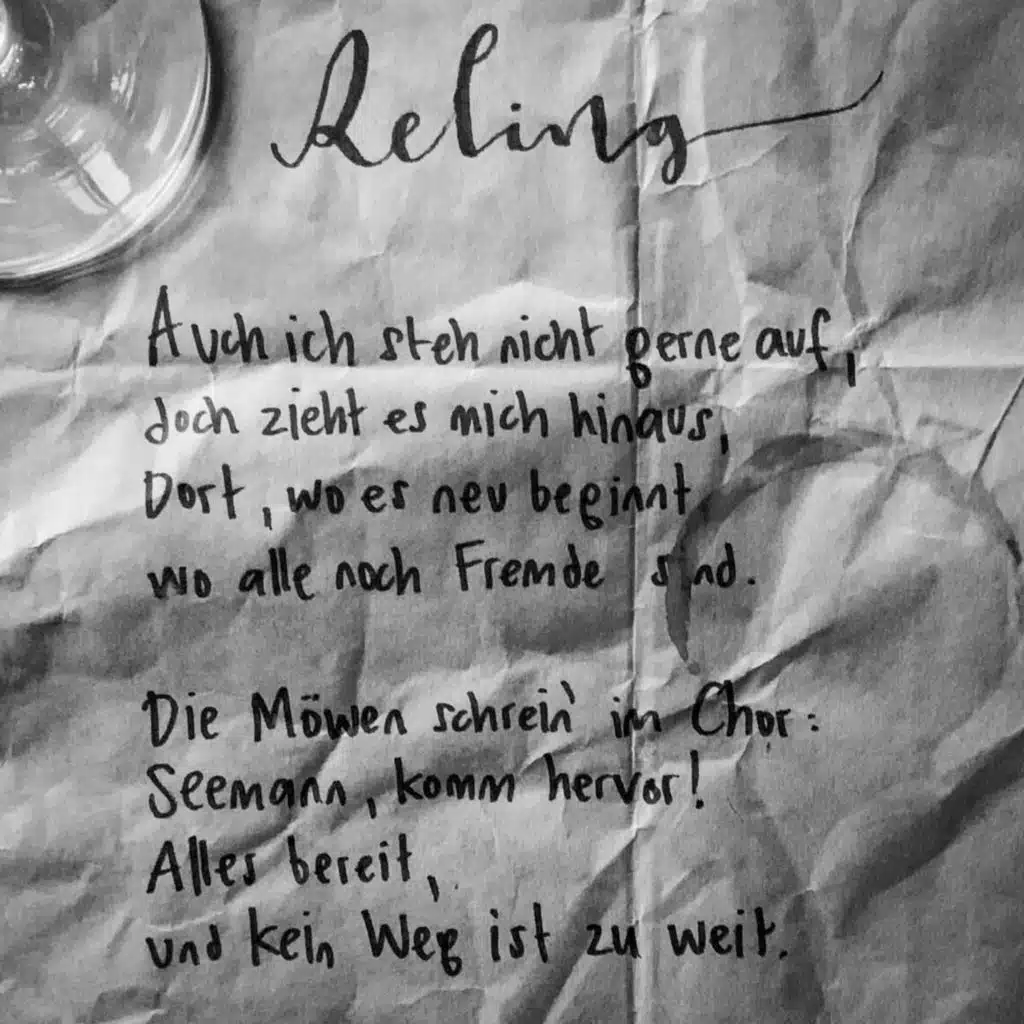 Reling
Auch ich steh nicht gerne auf,
doch zieht es mich hinaus,
Dort, wo es neu beginnt,
wo alle noch Fremde sind.
Die Möwen schrein' im Chor:
Seemann, komm hervor!
Alles bereit,
und kein Weg ist zu weit.